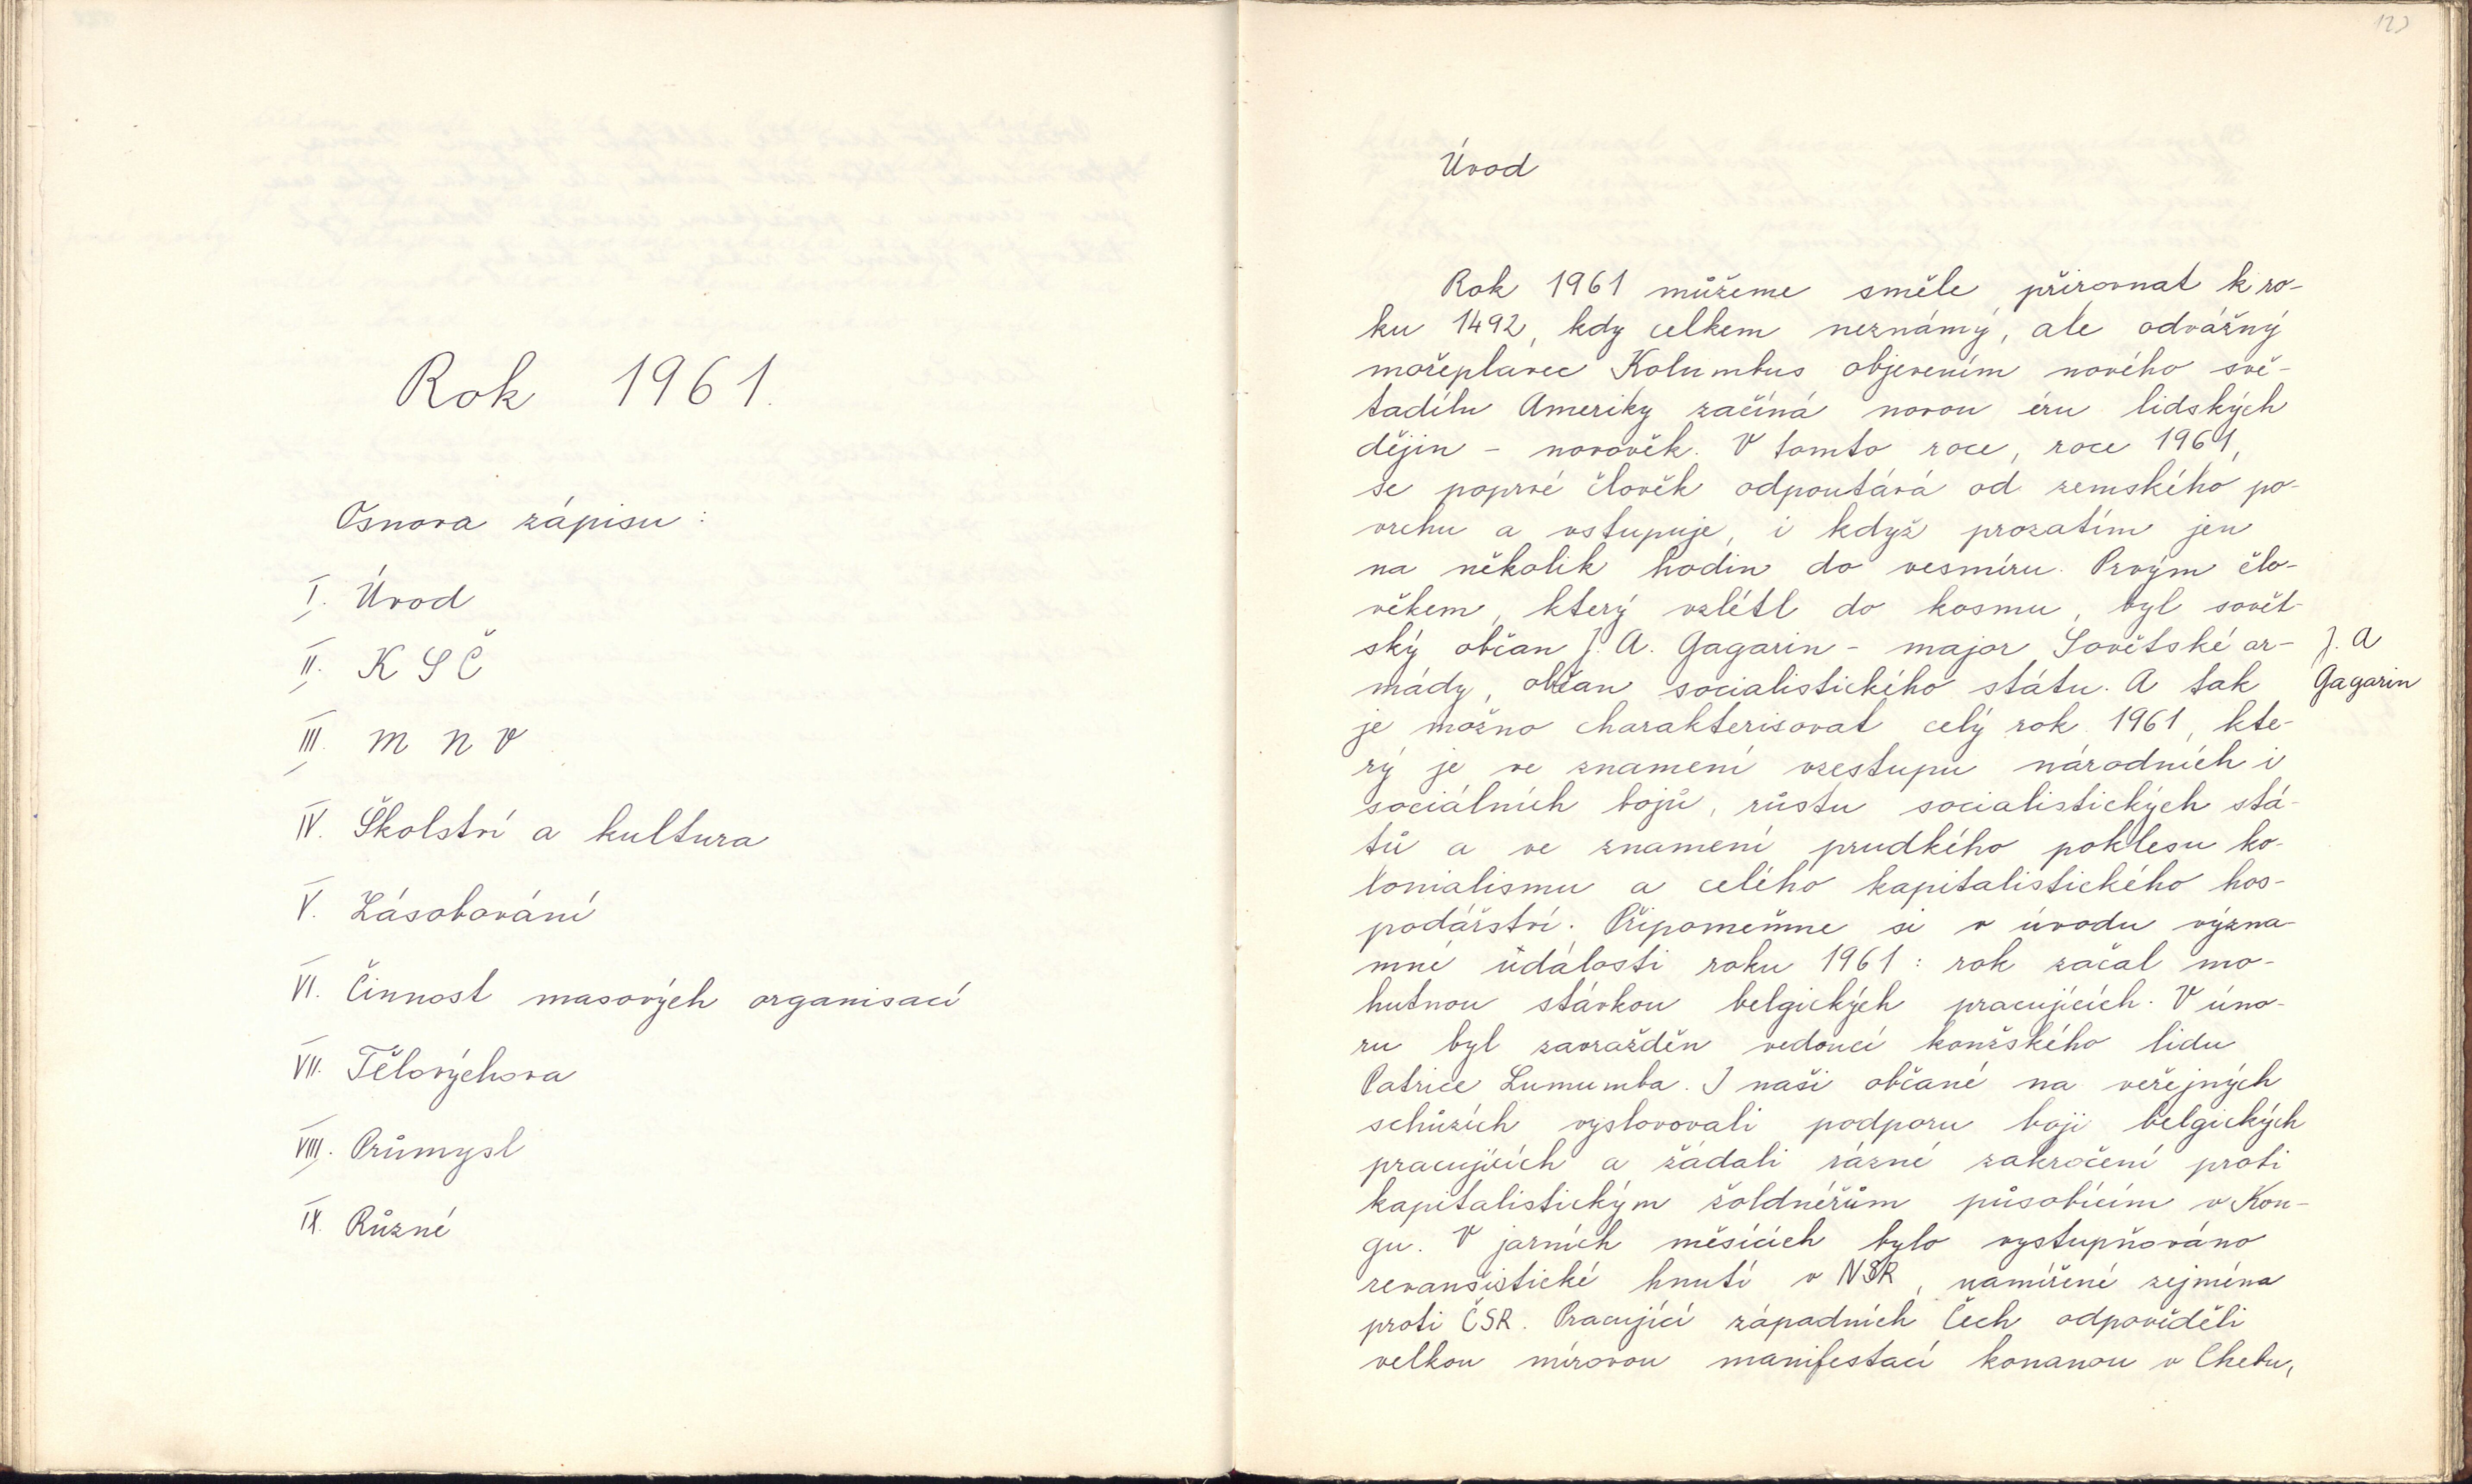 Rok 1961.
Osnova zápisu :
I. Úvod
II. K S Č
III. M N V
IV. Školství a kultura
V. Zásobování
VI. Činnost masových organisací
VII. Tělovýchova
VIII. Průmysl
IX. Různé
Úvod
Rok 1961 můžeme směle přirovnat k ro-
ku 1492, kdy celkem neznámý, ale odvážný
mořeplavec Kolumbus objevením nového svě-
tadílu Ameriky začíná novou éru lidských
dějin - novověk. V tomto roce, roce 1961,
se poprvé člověk odpoutává od zemského po-
vrchu a vstupuje, i když prozatím jen
na několik hodin do vesmíru. Prvým člo-
věkem, který vzlétl do kosmu, byl sovět-
ský občan J. A. Gagarin - major Sovětské ar-
mády, občan socialistického státu. A tak
je možno charakterisovat celý rok 1961, kte-
rý je ve znamení vzestupu národních i
sociálních bojů, růstu socialistických stá-
tů a ve znamení prudkého poklesu ko-
lonialismu a celého kapitalistického hos-
podářství. Připomeňme si v úvodu význa-
mné události roku 1961 : rok začal mo-
hutnou stávkou belgických pracujících. V úno-
ru byl zavražděn vedoucí konžského lidu
Patrice Lumumba. I naši občané na veřejných
schůzích vyslovovali podporu boji belgických
pracujících a žádali rázné zakročení proti
kapitalistickým žoldnéřům působícím v Kon-
gu. V jarních měsících bylo vystupňováno
revanšistické hnutí v NSR, namířené zejména
proti ČSR. Pracující západních Čech odpověděli
velkou mírovou manifestací konanou v Chebu,
J. A
Gagarin